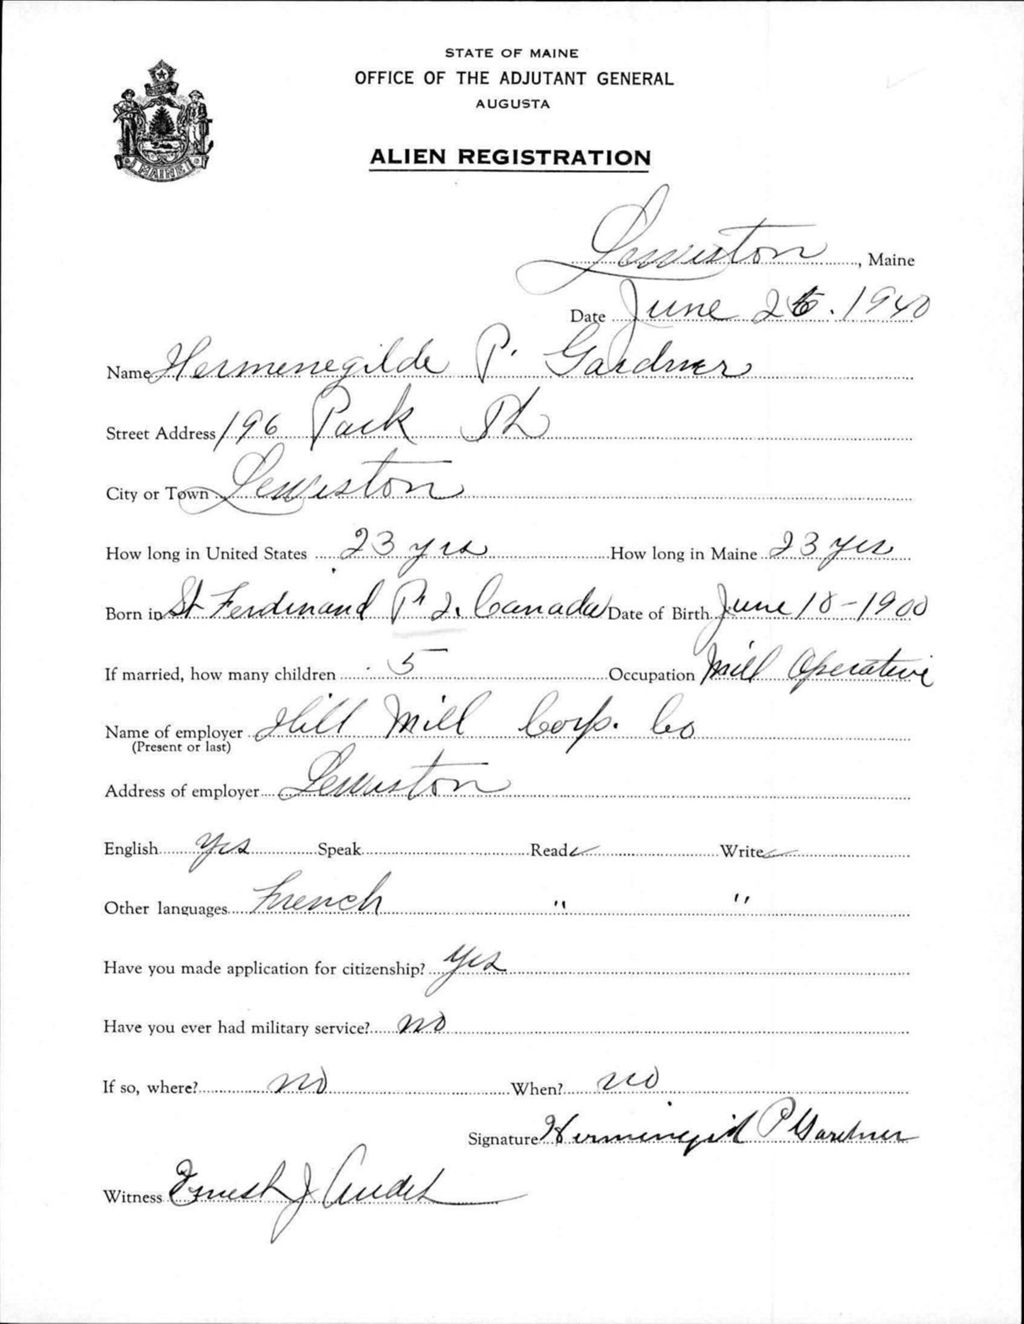 STATE OF MAINE
OFFICE OF THE ADJUTANT GENERAL
AUGUSTA
ALIEN REGISTRATION
MAINE
Lewiston, Maine
Date June 26. 1940
Name Hermenegilde P. Gardner
Street Address 196 Park St
City or Town Lewiston
How long in United States 23 yrs How long in Maine 23 yrs
Born in St Ferdinand P. 2. Canada Date of Birth June 18-1900
If married, how many children 5 Occupation Mill Operative
Name of employer Hill Mill Corp. Co
(Present or last)
Address of employer Lewiston
English Yes Speak Read ✓ Write ✓
Other languages French " "
Have you made application for citizenship? Yes
Have you ever had military service? no
If so, where? no When? no
Signature Hermenegild P Gardner
Witness Ernest J Audet